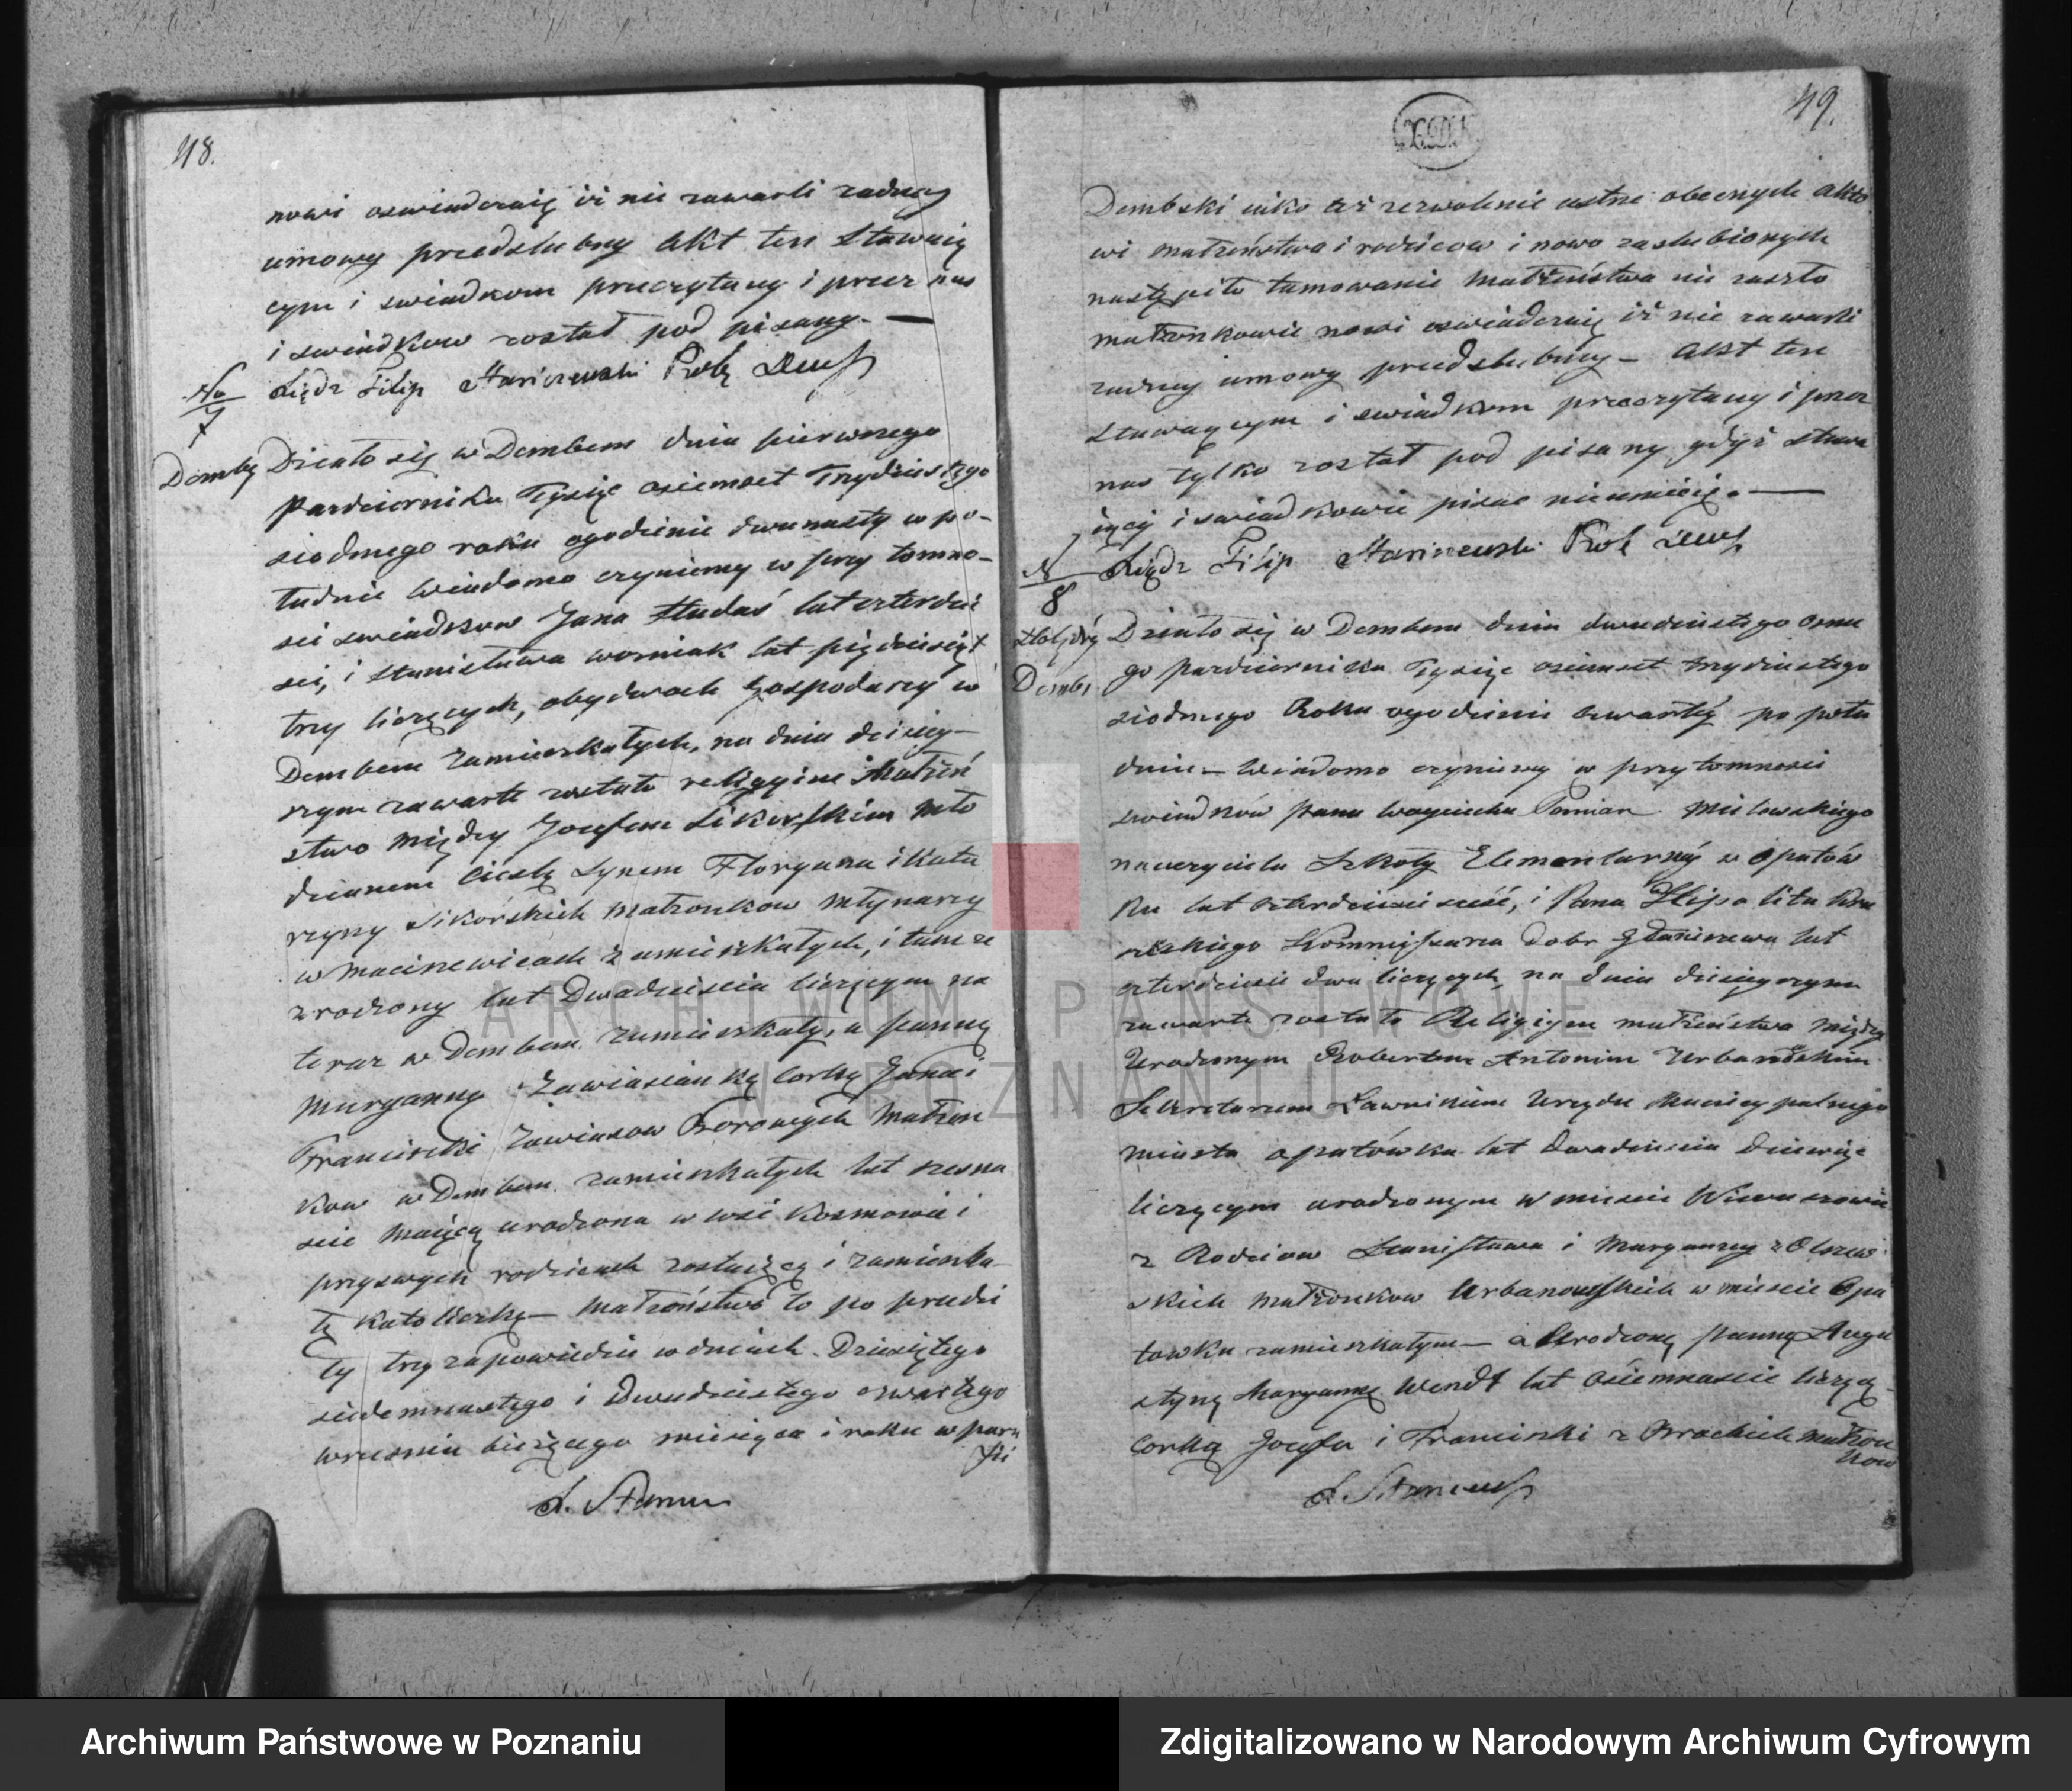 48.
nowi oswiadczaią iż nie zawarli żadney
umowy przedslubny Akt ten Stawaią
cym i swiadkom przeczytany i przez nas
i swiadkow został pod pisany.—
Xiądz Filip
No 7
Demby
Działo się w Dembem dnia pierwszego
Pazdziernika Tysiąc osiemset Trzydziestego
siodmego roku ogodzinie dwunasty w po-
łudnie Wiadomo czyniemy w przy tomno-
sci swiadkow Jana Studaś lat czterdzie
sci, i Stanisława Wozniak lat pięcdziesiąt
trzy liczących, obydwoch gospodarzy w
Dembem zamieszkałych, na dniu dzisiey-
szym zawarte zostało religyine Małżeń
stwo między Jozefem Sikorskim Mło
dzianem Cieslą Synem Floryana i Kata
rzyny Sikorskich małżonkow Młynarzy
w Maciszewicach zamieszkałych, i tamże
zrodzony lat Dwadziescia liczącym na
teraz w Dembem zamieszkały, a panną
Maryanną Zawiasianką Corką Jana i
Franciszki Zawiasow Borowych Małżon
kow w Dembem zamieszkałych lat szesna
scie maiącą urodzona w wsi Kosmowie i
przyswych rodzicach zostaiącą i zamieszka-
łą Katoliczką— Małżeństwo to po przedzi
ły trzy zapowiedzie w dniach Dziesiątego
siedemnastego i Dwudziestego czwartego
wrzesnia bieżącego miesiąca i roku w para
fii
49.
Dembski iako też zezwolenie ustne obecnych akto
wi małżeństwa i rodzicow i nowo zaslubionych
nastąpiło tamowanie Małżeństwa nie zaszło
małżonkowie nowi oswiadczaią iż nie zawarli
żadney umowy przedslubny— Akt ten
Stawaącym i swiadkom przeczytany i przez
nas tylko został pod pisany gdyż stawa
iący i swiadkowie pisac nieumieią.—
Xiądz Filip
N 8
Demb.
Działo się w Dembem dnia dwudziestego osme
go pazdziernika Tysiąc osiemset trzydziestego
siodmego Roku ogodzinie czwarty po połu
dniu— Wiadomo czyniemy w przytomnosci
swiadków Pana Woyciecha Pomian Milowskiego
nauczyciela Szkoły Elementarnéy w Opatów
ku lat czterdziesci sześć, i Pana Hipolita Kra
Kommissarza Dobr Zdaniszewa lat
czterdziesci dwa liczących, na dniu dzisieyszym
zawarte zostało Religiyne małżeństwo między
Urodzonym Robertem Antonim Urbanowskim
Sekretarzem Ławnikiem Urzędu Municypalnego
miasta Opatówka lat dwadziescia dziewięc
liczącym urodzonym w miescie
z Rodzicow Stanisława i Maryanny z Olszew
skich małżonkow Urbanowskich w miescie Opa
towku zamieszkałym— a Urodzoną panną Augu
styną Maryanną Wendt lat osiemnascie liczącą
Corką Jozefa i Franciszki z Brockich małżon
kow
ARCHIWUM PAŃSTWOWE
W POZNANIU
Archiwum Państwowe w Poznaniu
Zdigitalizowano w Narodowym Archiwum Cyfrowym